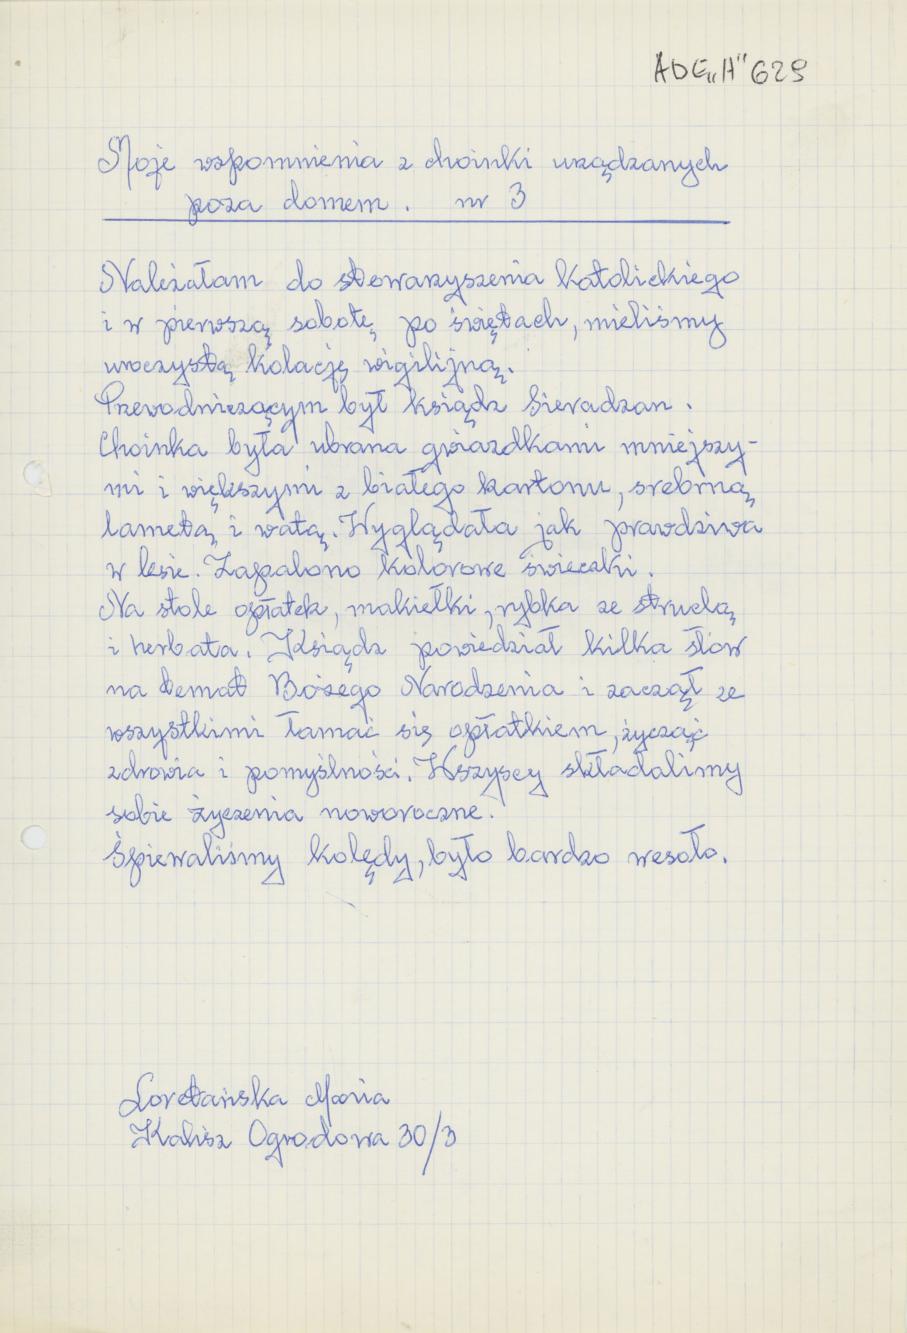 ADE „H" 629
Moje wspomnienia z choinki urządzanych
poza domem. nr 3
Należałam do stowarzyszenia katolickiego
i w pierwszą sobotę po świętach, mieliśmy
uroczystą kolację wigilijną.
Przewodniczącym był ksiądz Sieradzan.
Choinka była ubrana gwiazdkami mniejszy-
mi i większymi z białego kartonu, srebrną
lametą i watą. Wyglądała jak prawdziwa
w lesie. Zapalono kolorowe świeczki.
Na stole opłatek, makiełki, rybka ze struclą
i herbata. Ksiądz powiedział kilka słów
na temat Bożego Narodzenia i zaczął ze
wszystkimi łamać się opłatkiem, życząć
zdrowia i pomyślności. Wszyscy składalimy
sobie życzenia noworoczne.
Śpiewaliśmy kolędy, było bardzo wesoło.
Loretańska Maria
Kalisz Ogrodowa 30/3